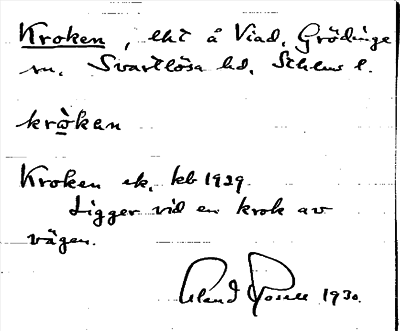 Kroken, lht å Viad, Grödinge
sn. Svartlösa hd, Sthlms l.
krὼkan
Kroken ek. kb 1929.
Ligger vid en krok av
vägen.
Erland Rosell 1930.